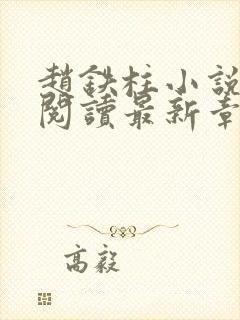 趙鉄柱小說
閱讀最新章
高毅